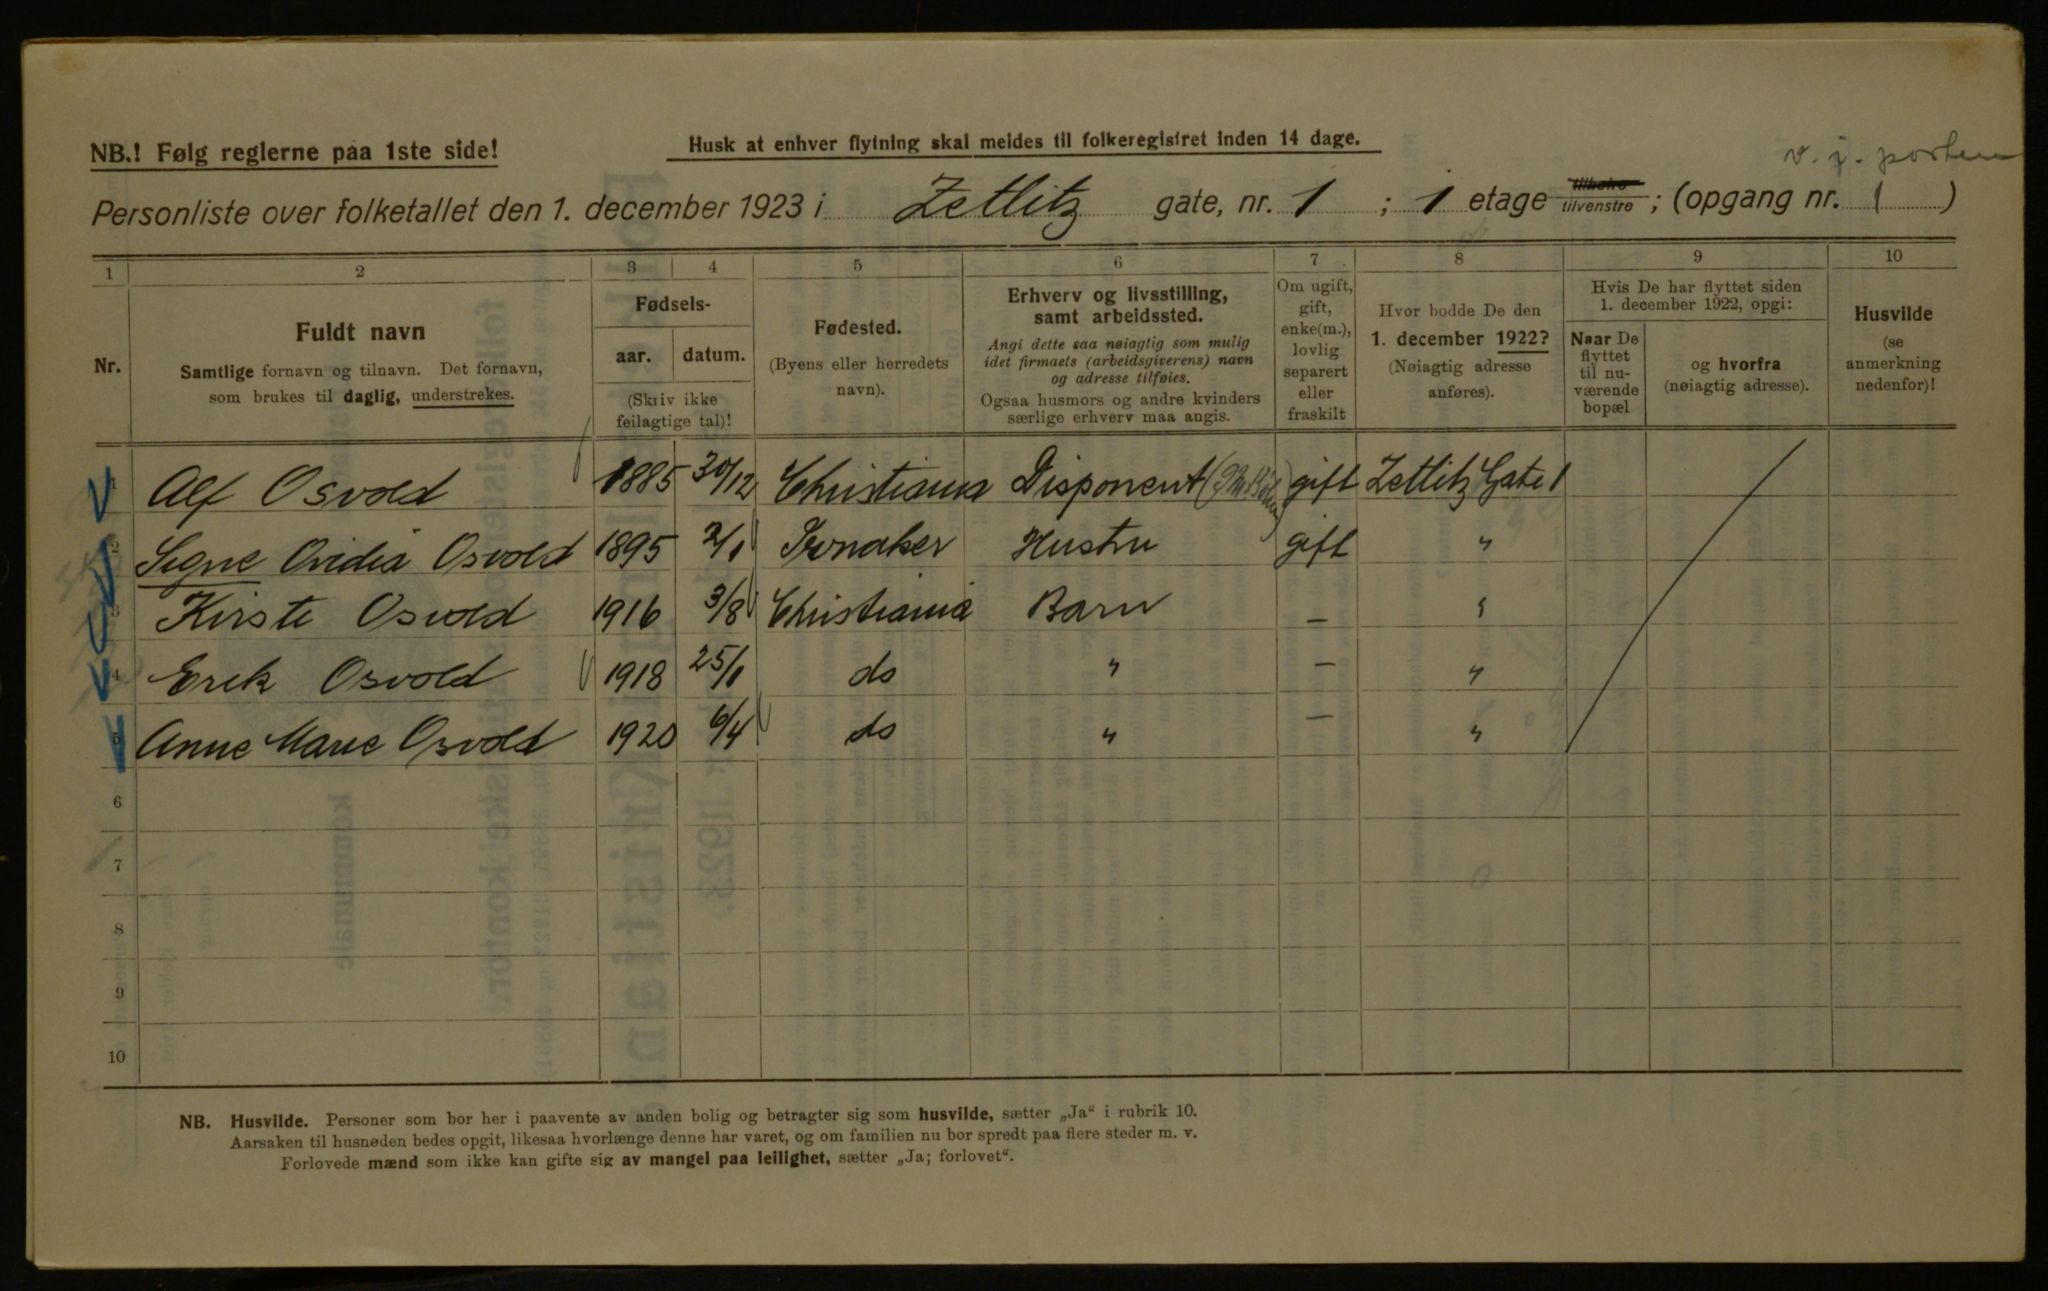 NB.! Følg reglerne paa 1ste side!
Husk at enhver flytning skal meldes til folkeregistret inden 14 dage.
v. i. porten
Personliste over folketallet den 1. december 1923 i Zetlitz gate, nr. 1 ; 1 etage tilhøire tilvenstre ; (opgang nr. 1 )
1 2 3 4 5 6 7 8 9 10
Nr.
Fuldt navn
Samtlige fornavn og tilnavn. Det fornavn,
som brukes til daglig, understrekes.
Fødsels-
aar. datum.
(Skriv ikke
feilagtige tal)!
Fødested.
(Byens eller herredets
navn).
Erhverv og livsstilling,
samt arbeidssted.
Angi dette saa nøiagtig som mulig
idet firmaets (arbeidsgiverens) navn
og adresse tilføies.
Ogsaa husmors og andre kvinders
særlige erhverv maa angis.
Om ugift,
gift,
enke(m.),
lovlig
separert
eller
fraskilt
Hvor bodde De den
1. december 1922?
(Nøiagtig adresse
anføres).
Hvis De har flyttet siden
1. december 1922, opgi:
Naar De
flyttet
til nu-
værende
bopæl
og hvorfra
(nøiagtig adresse).
Husvilde
(se
anmerkning
nedenfor)!
1 Alf Osvold 1885 30/12 Christiania Disponent gift Zetlitz Gate 1
2 Signe Ovidia Osvold 1895 2/1 Jevnaker Hustru gift "
3 Kirste Osvold 1916 3/8 Christiania Barn — "
4 Erik Osvold 1918 25/1 do " — "
5 Anne Marie Osvold 1920 6/4 do " — "
6
7
8
9
10
NB. Husvilde. Personer som bor her i paavente av anden bolig og betragter sig som husvilde, sætter „Ja“ i rubrik 10.
Aarsaken til husnøden bedes opgit, likesaa hvorlænge denne har varet, og om familien nu bor spredt paa flere steder m. v.
Forlovede mænd som ikke kan gifte sig av mangel paa leilighet, sætter „Ja; forlovet“.